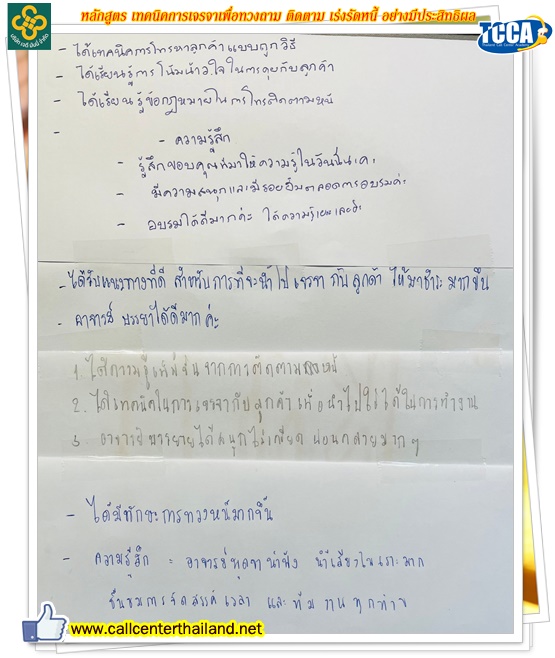 หลักสูตร เทคนิคการเจรจาเพื่อทวงถาม ติดตาม เร่งรัดหนี้ อย่างมีประสิทธิผล
TCCA
Thailand Call Center Academy
- ได้เทคนิคการโทรหาลูกค้าแบบถูกวิธี
- ได้เรียนรู้การโน้มน้าวใจในการคุยกับลูกค้า
- ได้เรียนรู้ข้อกฎหมายในการโทรติดตามหนี้
-
- ความรู้สึก
- รู้สึกขอบคุณที่มาให้ความรู้ในวันนี้นะคะ
- มีความสนุกและมีรอยยิ้มตลอดการอบรมค่ะ
- อบรมได้ดีมากค่ะ ได้ความรู้เยอะเลยค่ะ
- ได้รับแนวทางที่ดี สำหรับการที่จะนำไป เจรจา กับ ลูกค้า ให้มาชำระ มากขึ้น
- อาจารย์ บรรยายได้ดีมาก ค่ะ
1. ได้ความรู้เพิ่มขึ้นจากการติดตามทวงหนี้
2. ได้เทคนิคในการเจรจากับลูกค้าเพื่อนำไปใช้ได้ในการทำงาน
3. อาจารย์บรรยายได้สนุกไม่เครียด ผ่อนคลายมากๆ
- ได้มีทักษะการทวงหนี้มากขึ้น
- ความรู้สึก = อาจารย์พูดจาน่าฟัง น้ำเสียงไพเราะมาก
ชื่นชมการจัดสรรค์เวลา และทีมงานทุกท่าน
www.callcenterthailand.net